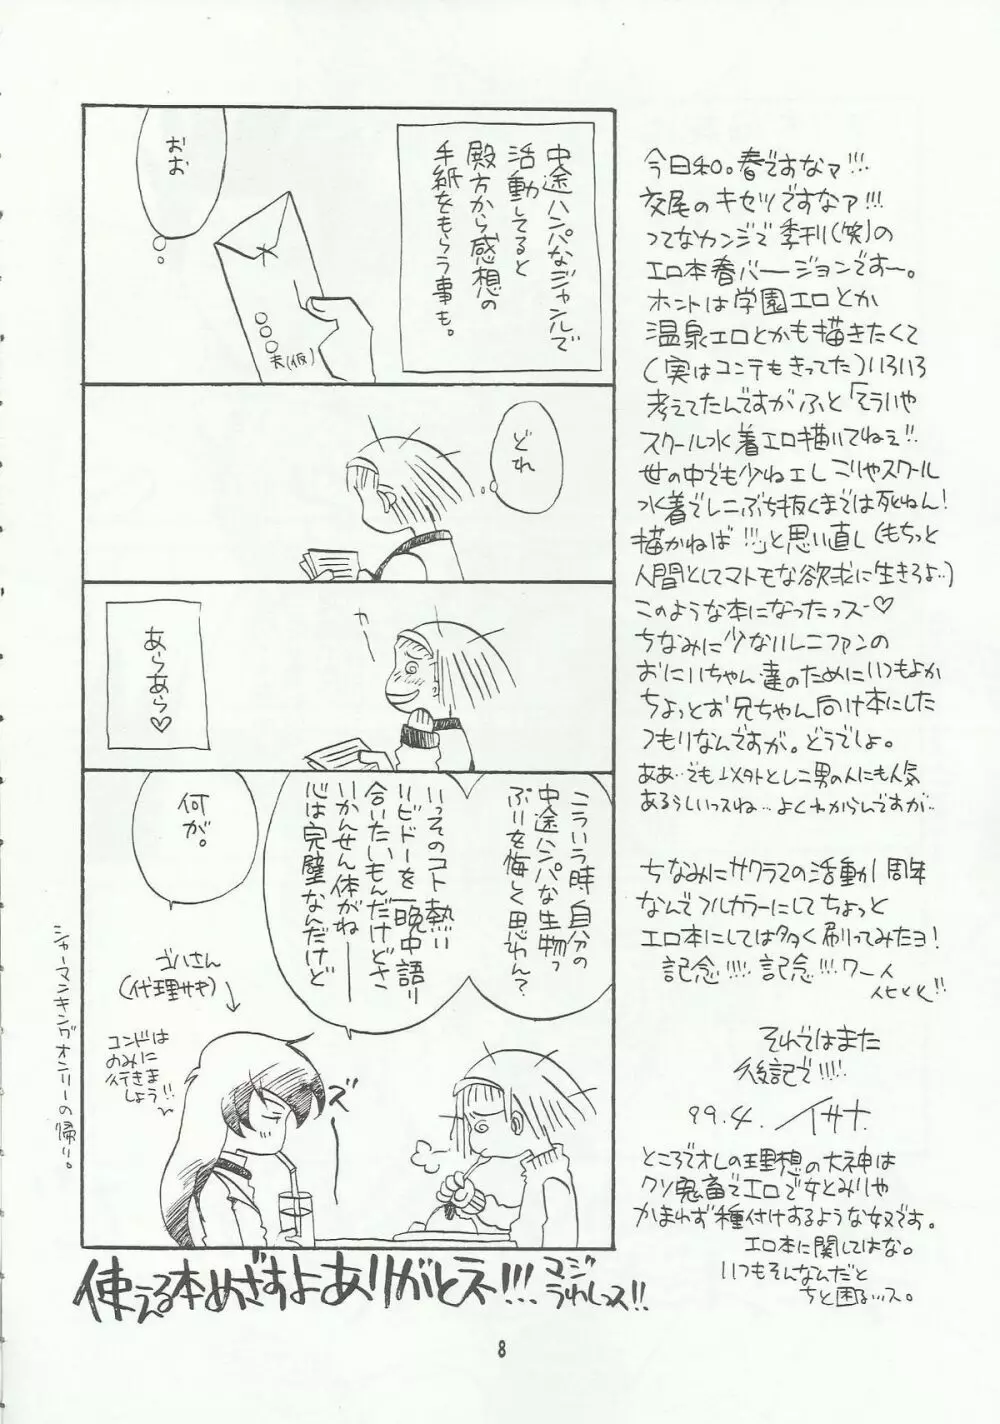 今日和。春ですなァ!!!
交尾のキセツですなァ!!!
ってなカンジで季刊(笑)の
エロ本春バージョンですー。
ホントは学園エロとか
温泉エロとかも描きたくて
(実はコンテもきってた)いろいろ
考えてたんですがふと「そういや
スクール水着エロ描いてねぇ!!
世の中でも少ねェしこりゃスクール
水着でレニぶち抜くまでは死ねん!
描かねば!!!」と思い直し(もちっと
人間としてマトモな欲求に生きろよ…)
このような本になったっスー♡
ちなみに少ないレニファンの
おにいちゃん達のためにいつもよか
ちょっとお兄ちゃん向け本にした
つもりなんですが。どうでしょ。
ああ…でも以外とレニ男の人にも人気
あるらしいっスね…よくわからんですが…
ちなみにサクラでの活動1周年
なんでフルカラーにしてちょっと
エロ本にしては多く刷ってみたヨ!
記念!!!! 記念!!!ワーイ
それではまた
後記で!!!!
99.4. イサナ
ところでオレの理想の大神は
クソ鬼畜でエロで女とみりゃ
かまわず種付けするような奴です。
エロ本に関してはな。
いつもそんなんだと
ちと困る…ス。
中途ハンパなジャンルで
活動してると
殿方から感想の
手紙をもらう事も。
おお
○○○夫(仮)
どれ
かー
あらあら♡
こういう時自分の
中途ハンパな生物っ
ぷりを悔しく思わん?
いっそのコト熱い
リビドーを一晩中語り
合いたいもんだけどさ
いかんせん体がねー
心は完璧なんだけど
何が。
ゴハさん
(代理サキ)
コンドは
のみに
行きま
しょう!!
ズー
シャーマンキングオンリーの帰り。
使える本めざすよありがとネ!!!
マジ
うれしっス!!
8